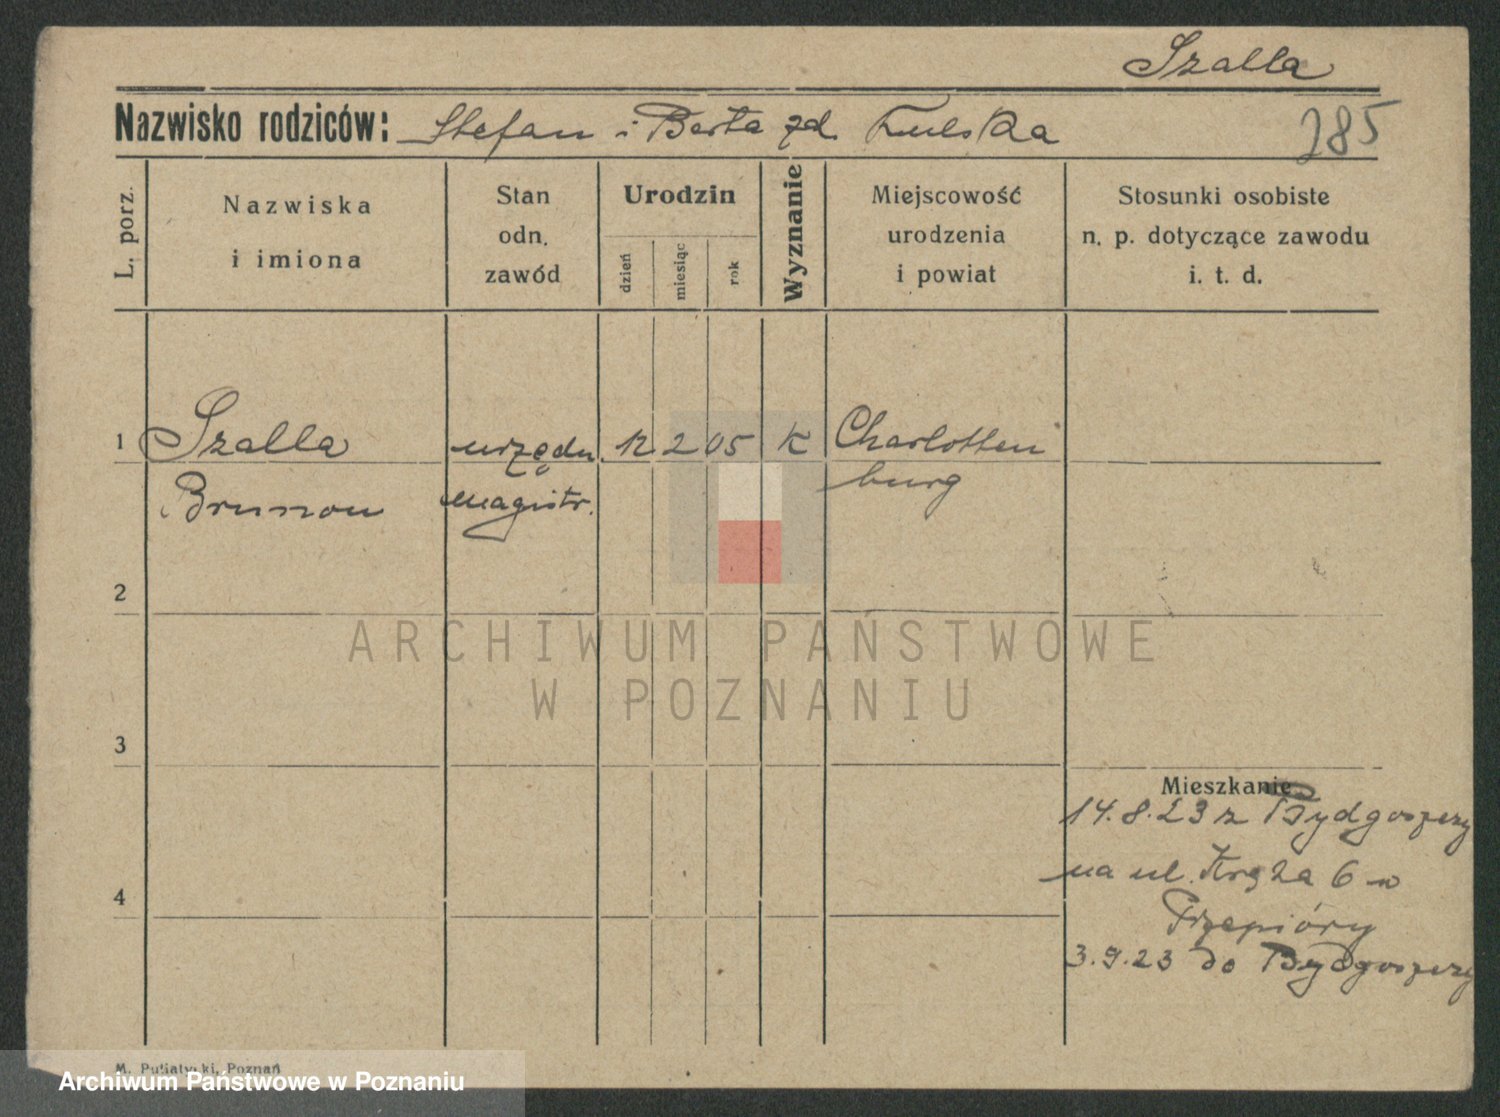 Szalla
Nazwisko rodziców: Stefan i Berta zd.
285
L. porz.
Nazwiska
i imiona
Stan
odn.
zawód
Urodzin
dzień
miesiąc
rok
Wyznanie
Miejscowość
urodzenia
i powiat
Stosunki osobiste
n. p. dotyczące zawodu
i. t. d.
1
Szalla
urzędn.
12
2
05
K
Charlotten
Brunon
magistr.
burg
2
ARCHIWUM PAŃSTWOWE
W POZNANIU
3
Mieszkanie
14.8.23 z Bydgoszczy
na ul. 6
4
3.9.23 do Bydgoszczy
Poznań
Archiwum Państwowe w Poznaniu